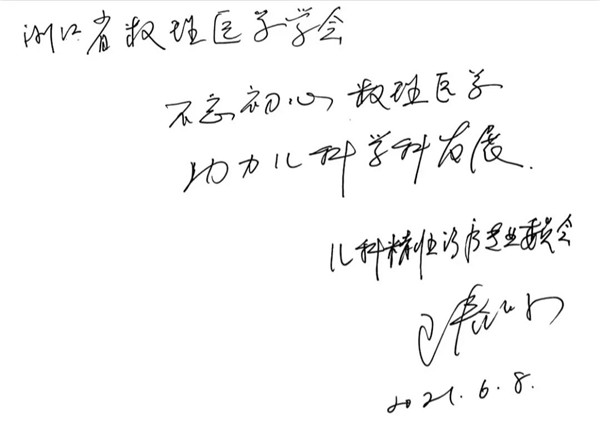 浙江省数理医学学会
不忘初心 数理医学
助力儿科学科发展.
儿科精准诊疗专业委员会
2021.6.8.